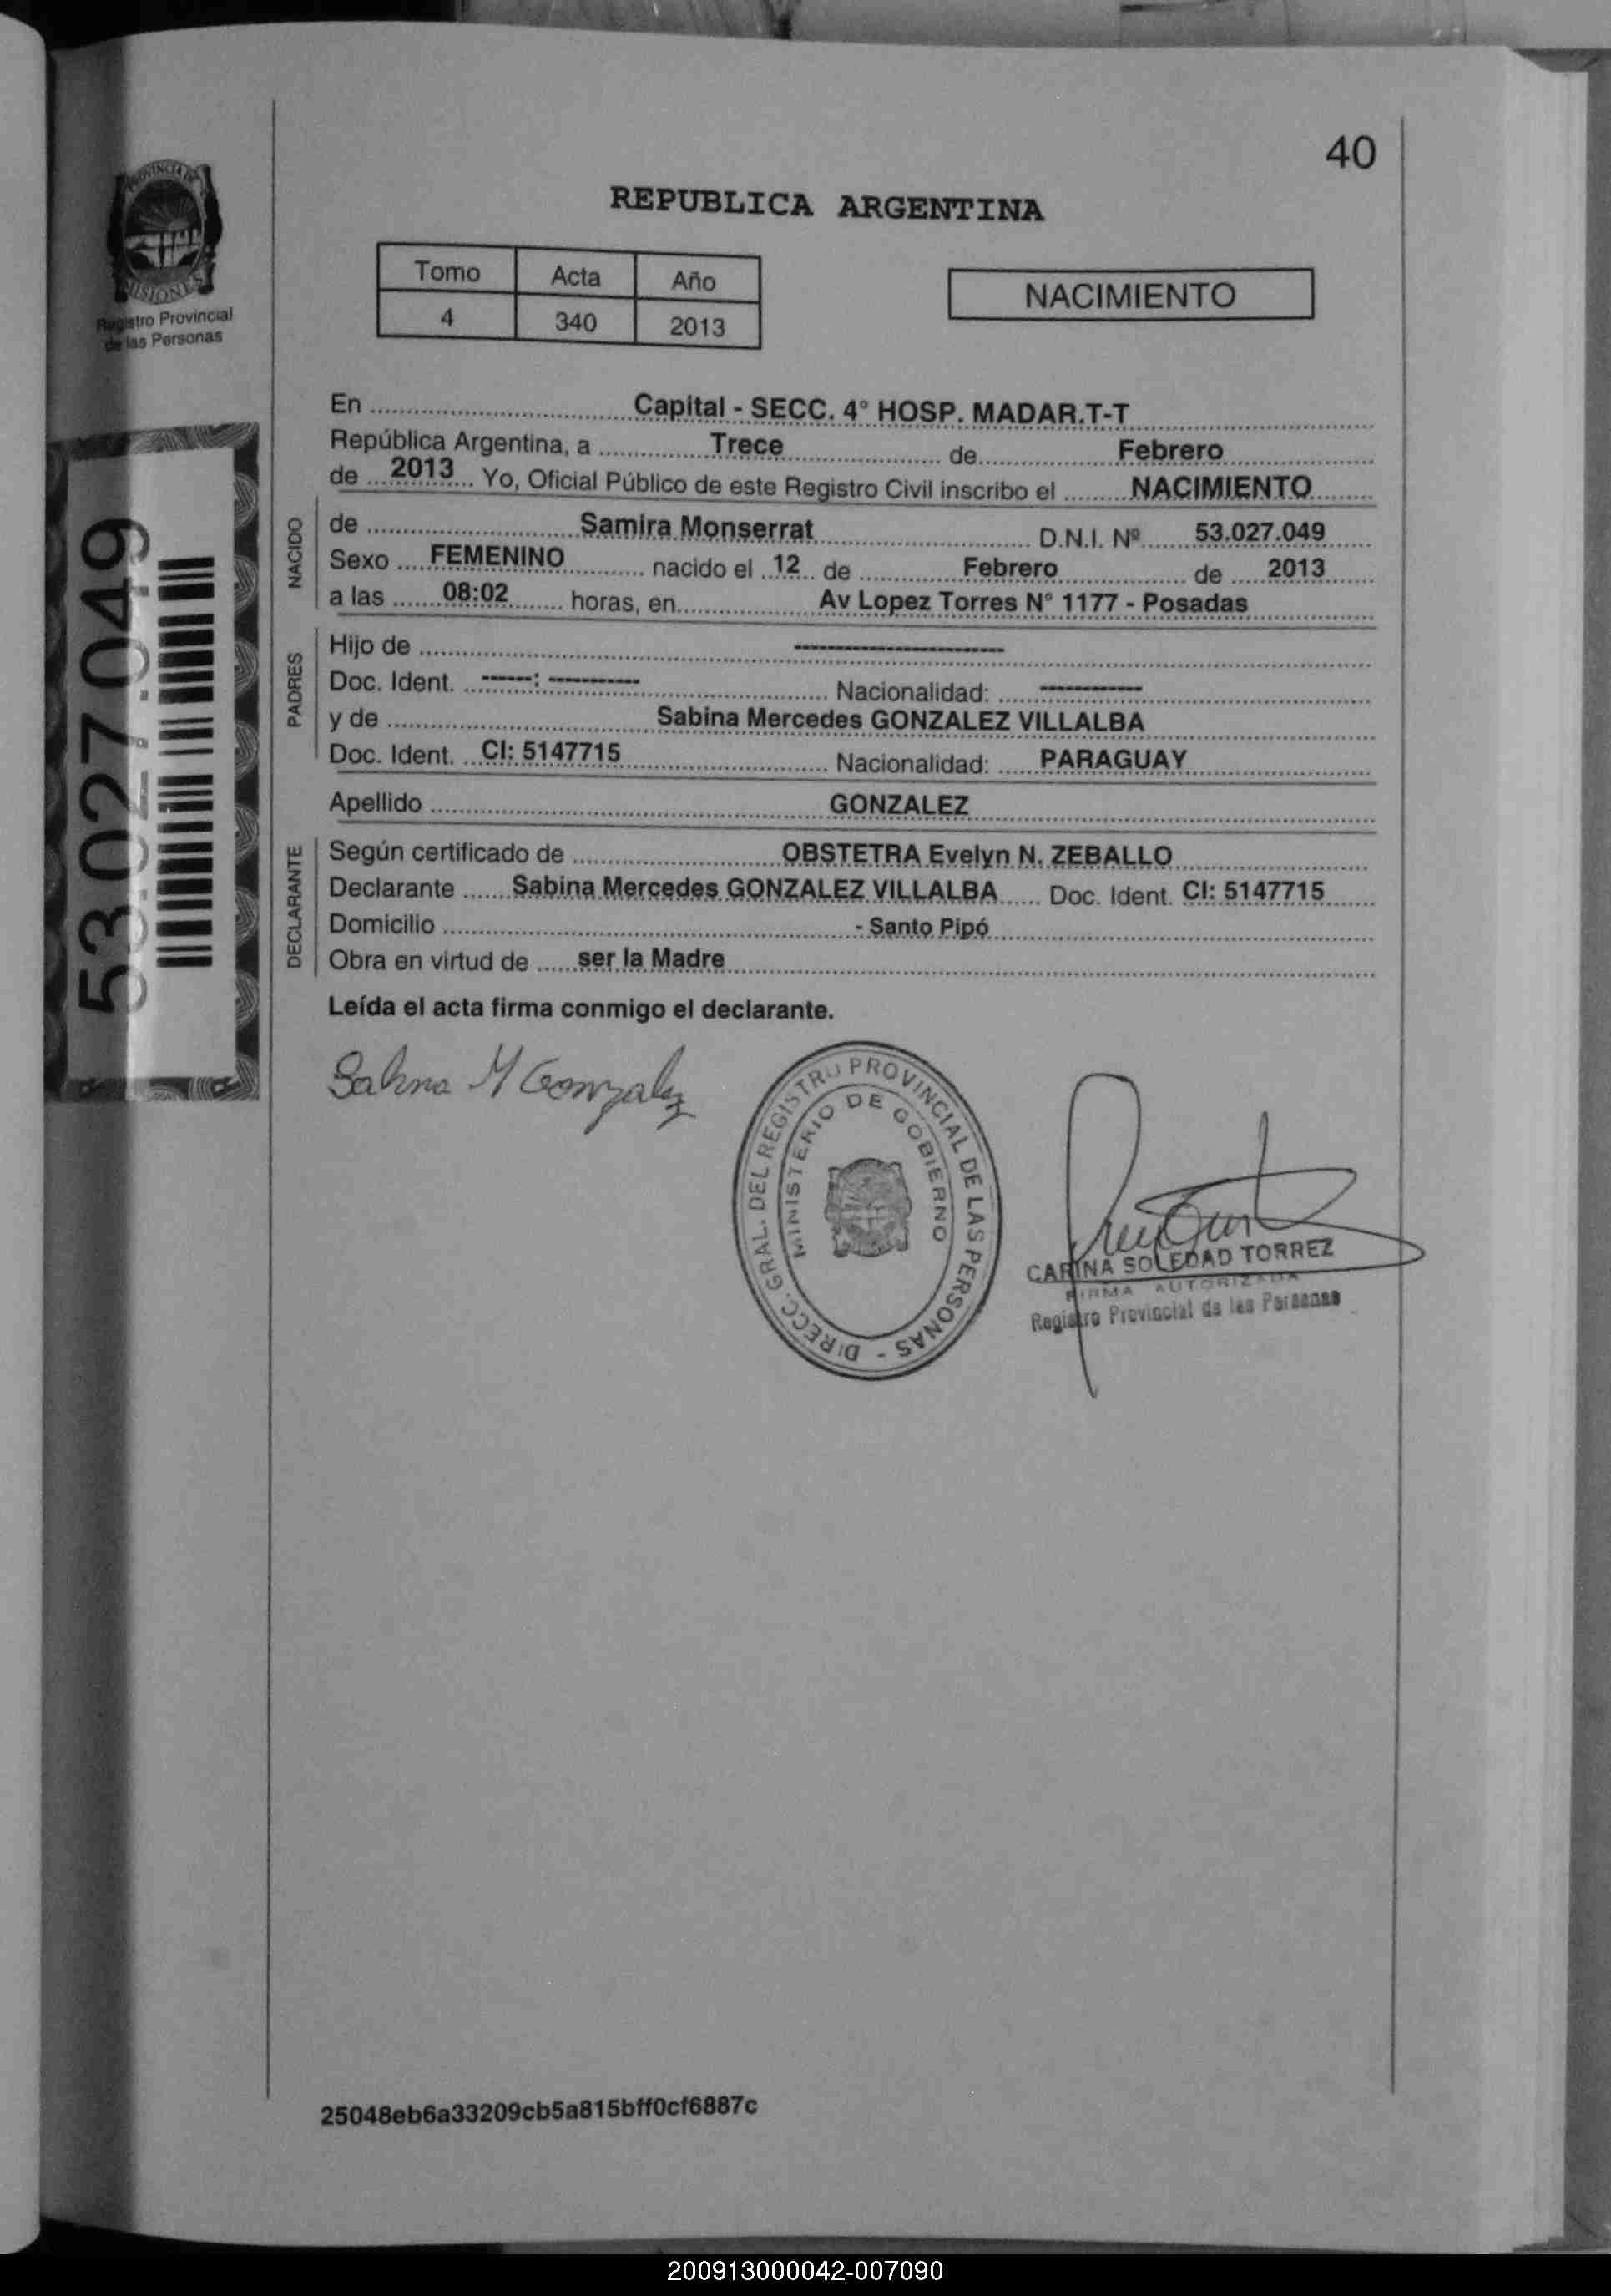 40
PROVINCIA DE
MISIONES
Registro Provincial
de las Personas
REPUBLICA ARGENTINA
Tomo Acta Año
4 340 2013
NACIMIENTO
53.027.049
En Capital - SECC. 4° HOSP. MADAR.T-T
República Argentina, a Trece de Febrero
de 2013 Yo, Oficial Público de este Registro Civil inscribo el NACIMIENTO
NACIDO
de Samira Monserrat D.N.I. Nº 53.027.049
Sexo FEMENINO nacido el 12 de Febrero de 2013
a las 08:02 horas, en Av Lopez Torres N° 1177 - Posadas
PADRES
Hijo de ---------------------
Doc. Ident. -----: --------- Nacionalidad: ----------
y de Sabina Mercedes GONZALEZ VILLALBA
Doc. Ident. CI: 5147715 Nacionalidad: PARAGUAY
Apellido GONZALEZ
DECLARANTE
Según certificado de OBSTETRA Evelyn N. ZEBALLO
Declarante Sabina Mercedes GONZALEZ VILLALBA Doc. Ident. CI: 5147715
Domicilio - Santo Pipó
Obra en virtud de ser la Madre
Leída el acta firma conmigo el declarante.
Sabina M Gonzalez
DIRECC. GRAL. DEL REGISTRO PROVINCIAL DE LAS PERSONAS -
MINISTERIO DE GOBIERNO
CARINA SOLEDAD TORREZ
FIRMA AUTORIZADA
Registro Provincial de las Personas
25048eb6a33209cb5a815bff0cf6887c
200913000042-007090